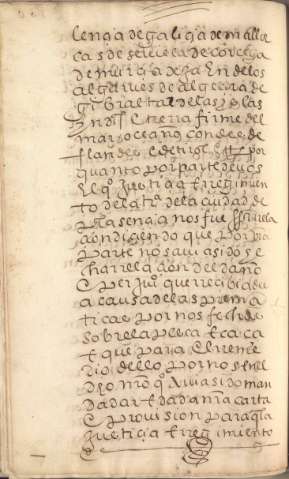 lençia de galiçia de mallor
cas de sevilla de cordova
de murçia de jaen de los
algarves de algezira de
gibraltar de las yslas
yndis e tierra firme del
mar oçeano conde de
flandes e de tirol etc por
quanto por parte de vos
el qº justiçia e regimien
to de la tiª de la çiudad de
plasençia nos fue ff rrela
çion diziendo que por vra
parte nos avia sido ffe
cha rrelaçion del daño
e perjuiº que rreçibia du
a causa de las prema
ticas por nos fechas
sobre la pesca e caça
e que para el rreme
dio dello por nos en el
dho nro qº avia sido man
dada dar e dada nra carta
e provision para q la
justiçia e regimiento